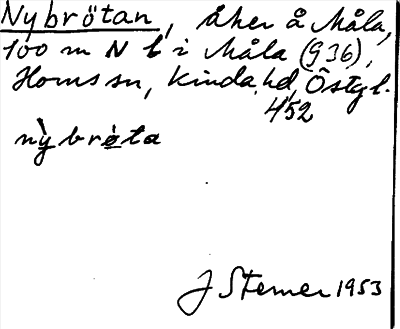 Nybrötan, åker å Måla,
100 m N b i Måla (936),
Horns sn, Kinda hd, Östgl.
452
nỳbrö̀ta
J Sterner 1953